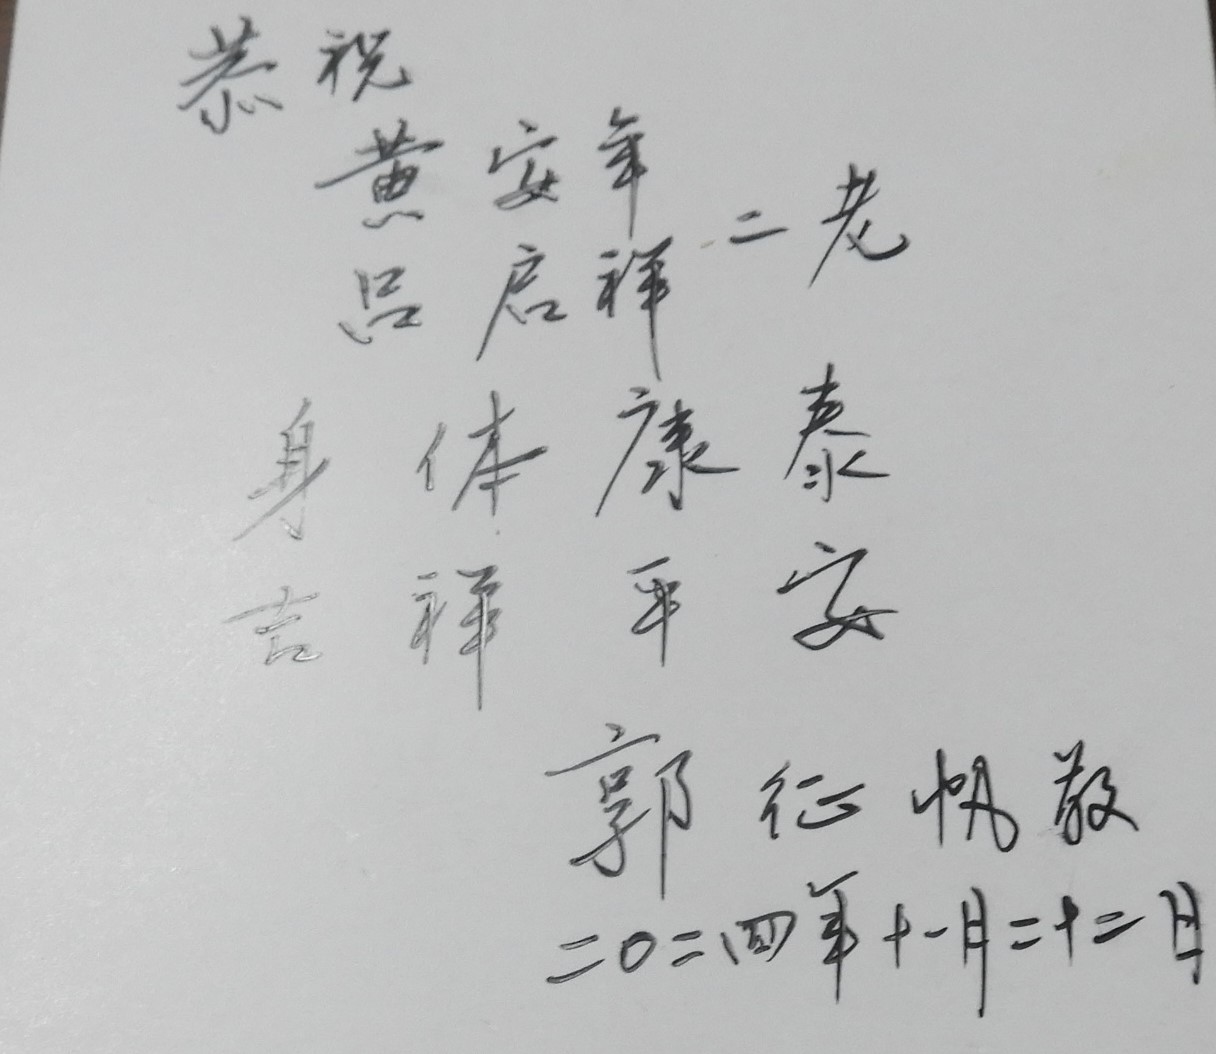 恭祝
黄安年
吕启祥 二老
身体康泰
吉祥平安
郭征帆敬
二〇二四年十一月二十二日